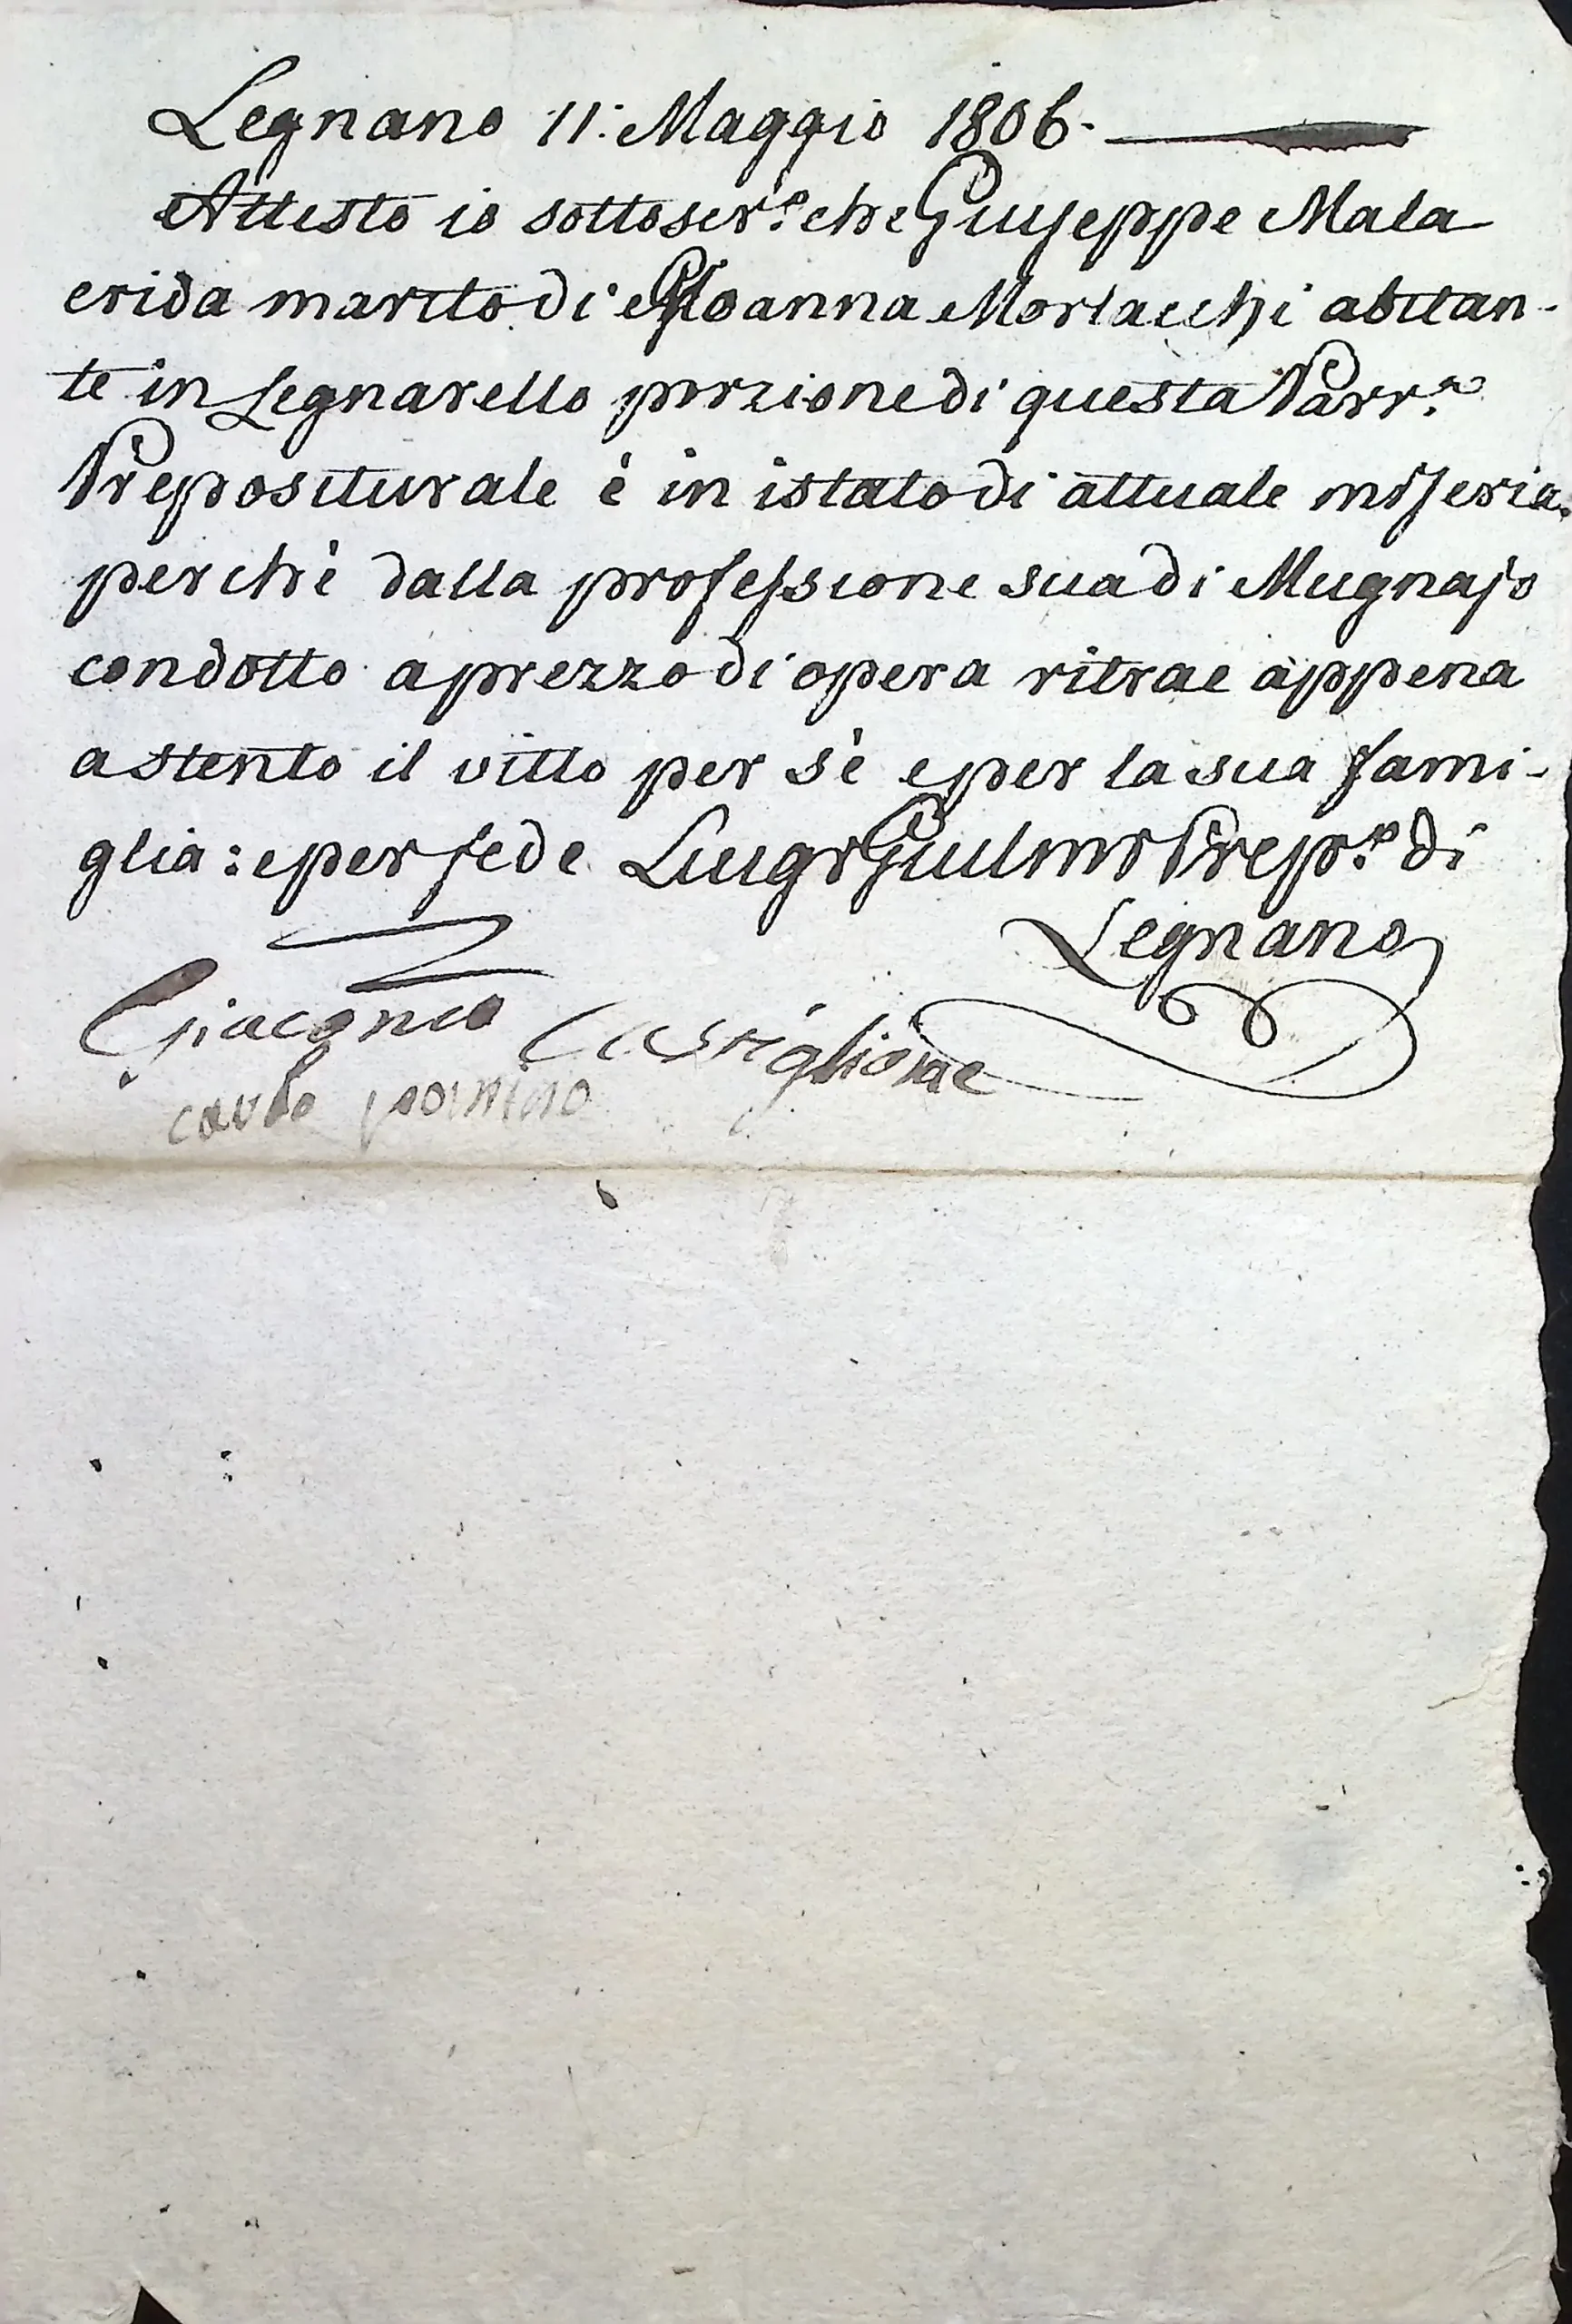 Legnano 11. Maggio 1806.
Attesto io sottoscr.º che Giuseppe Mala
crida marito di Gioanna Morlacchi abitan-
te in Legnarello porzione di questa Parr.ª
Prepositurale è in istato di attuale miseria
perchè dalla professione sua di Mugnajo
condotto a prezzo di opera ritrae appena
a stento il vitto per sè e per la sua fami-
glia: e per fede Luigi Giulini Prep.º di
Legnano
Giacomo Castiglione
carlo